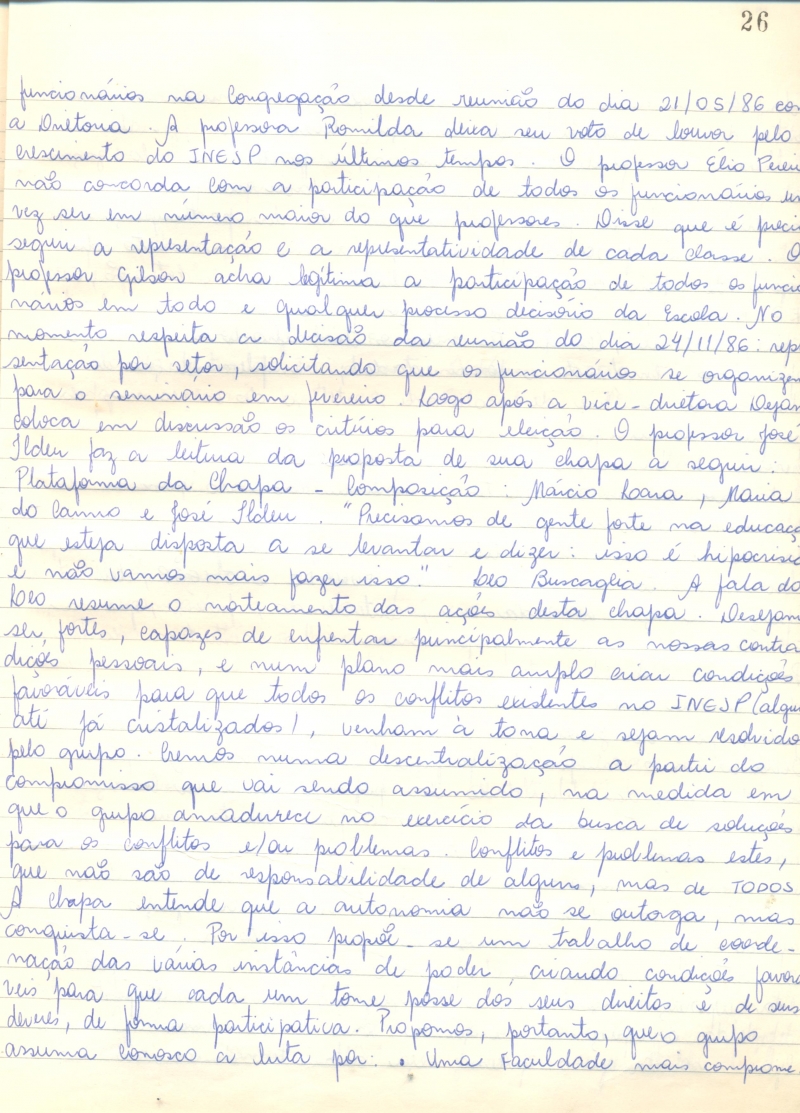 26
funcionários na Congregação desde reunião do dia 21/05/86 com
a Diretoria. A professora Romilda deixa seu voto de louvor pelo
crescimento do INESP nos últimos tempos. O professor Élio Perei
não concorda com a participação de todos os funcionários
vez ser em número maior do que professores. Disse que é preci
seguir a representação e a representatividade de cada classe. O
professor Gilson acha legítima a participação de todos os funcio
nários em todo e qualquer processo decisório da Escola. No
momento respeita a decisão da reunião do dia 24/11/86: repr
sentação por setor, solicitando que os funcionários se organizem
para o seminário em fevereiro. Logo após a vice-diretora Dejan
coloca em discussão os critérios para eleição. O professor José
Ildeu faz a leitura da proposta de sua chapa a seguir:
Plataforma da Chapa - Composição: Márcio Loara, Maria
do Carmo e José Ildeu. "Precisamos de gente forte na educaçã
que esteja disposta a se levantar e dizer: isso é hipocrisia
e não vamos mais fazer isso." Leo Buscaglia. A fala do
Leo resume o norteamento das ações desta chapa. Desejam
ser, fortes, capazes de enfrentar principalmente as nossas contra
dições pessoais, e num plano mais amplo criar condições
favoráveis para que todos os conflitos existentes no INESP (algun
até já cristalizados), venham à tona e sejam resolvido
pelo grupo. Cremos numa descentralização a partir do
compromisso que vai sendo assumido, na medida em
que o grupo amadurece no exercício da busca de soluções
para os conflitos e/ou problemas. Conflitos e problemas estes,
que não são de responsabilidade de alguns, mas de TODOS
A chapa entende que a autonomia não se outorga, mas
conquista-se. Por isso propõe-se um trabalho de coorde-
nação das várias instâncias de poder, criando condições favorá
veis para que cada um tome posse dos seus direitos e de seus
deveres, de forma participativa. Propomos, portanto, que o grupo
assuma conosco a luta por: • Uma Faculdade mais comprome